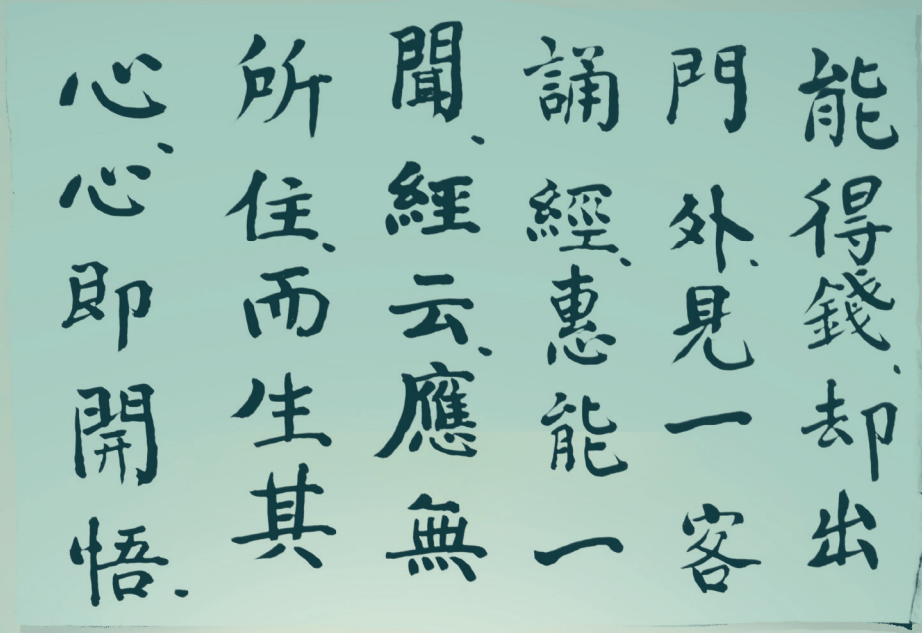 能得錢、却出
門外、見一客
誦經、惠能一
聞、經云、應無
所住、而生其
心、心即開悟、